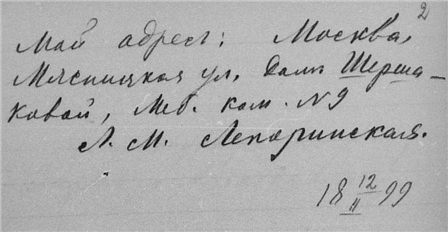 2
Мой адрес: Москва,
Мясницкая ул. Домъ Шерша-
ковой, Меб. ком. N 9
Л. М. Лепоринская.
18 12/II 99